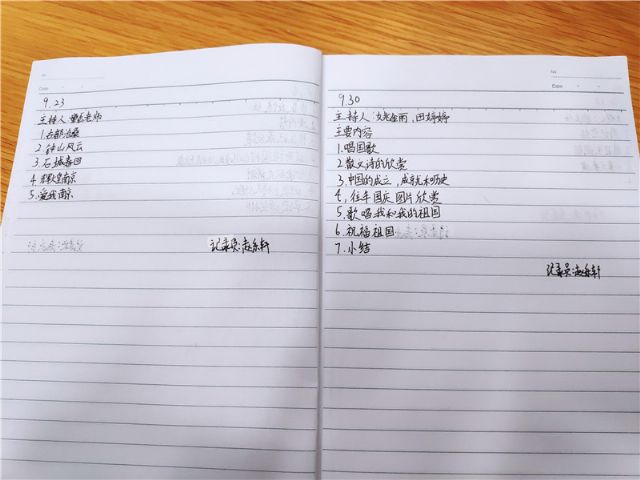 Date
9.23
主持人 老师
1.古都沧桑
2 钟山风云
3 石城春回
4 南京
5.爱我南京
记录员:赵东轩
No
Date
9.30
主持人: 雨,田婷婷
主要内容
1.唱国歌
2 散文诗的欣赏
3.中国的成立,成就和历史
4.往年国庆图片欣赏
5.歌唱我和我的祖国
6.祝福祖国
7.小结
记录员:赵东轩